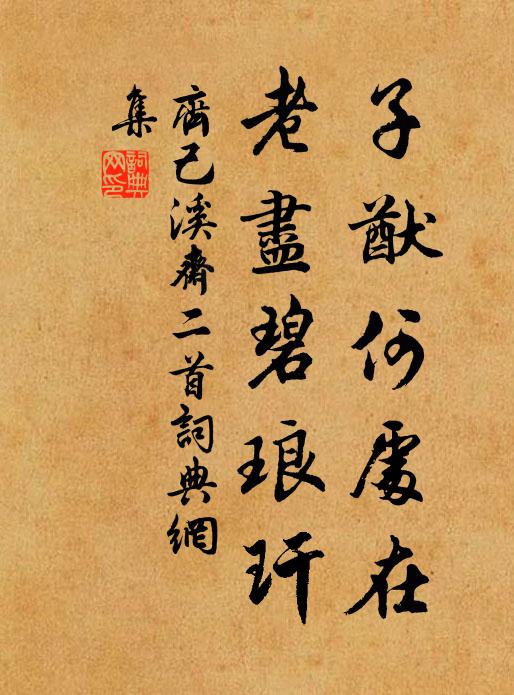 子猷何處在
老盡碧琅玕
齊己溪齋二首詞典網
集
詞典
网印